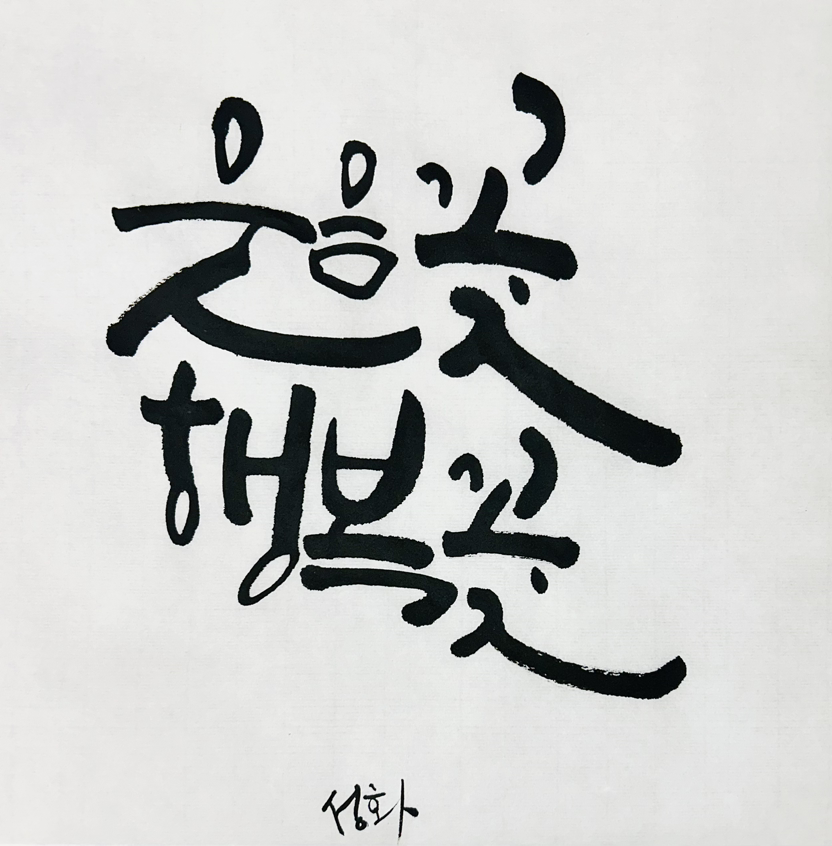 웃음꽃
행복꽃
성화